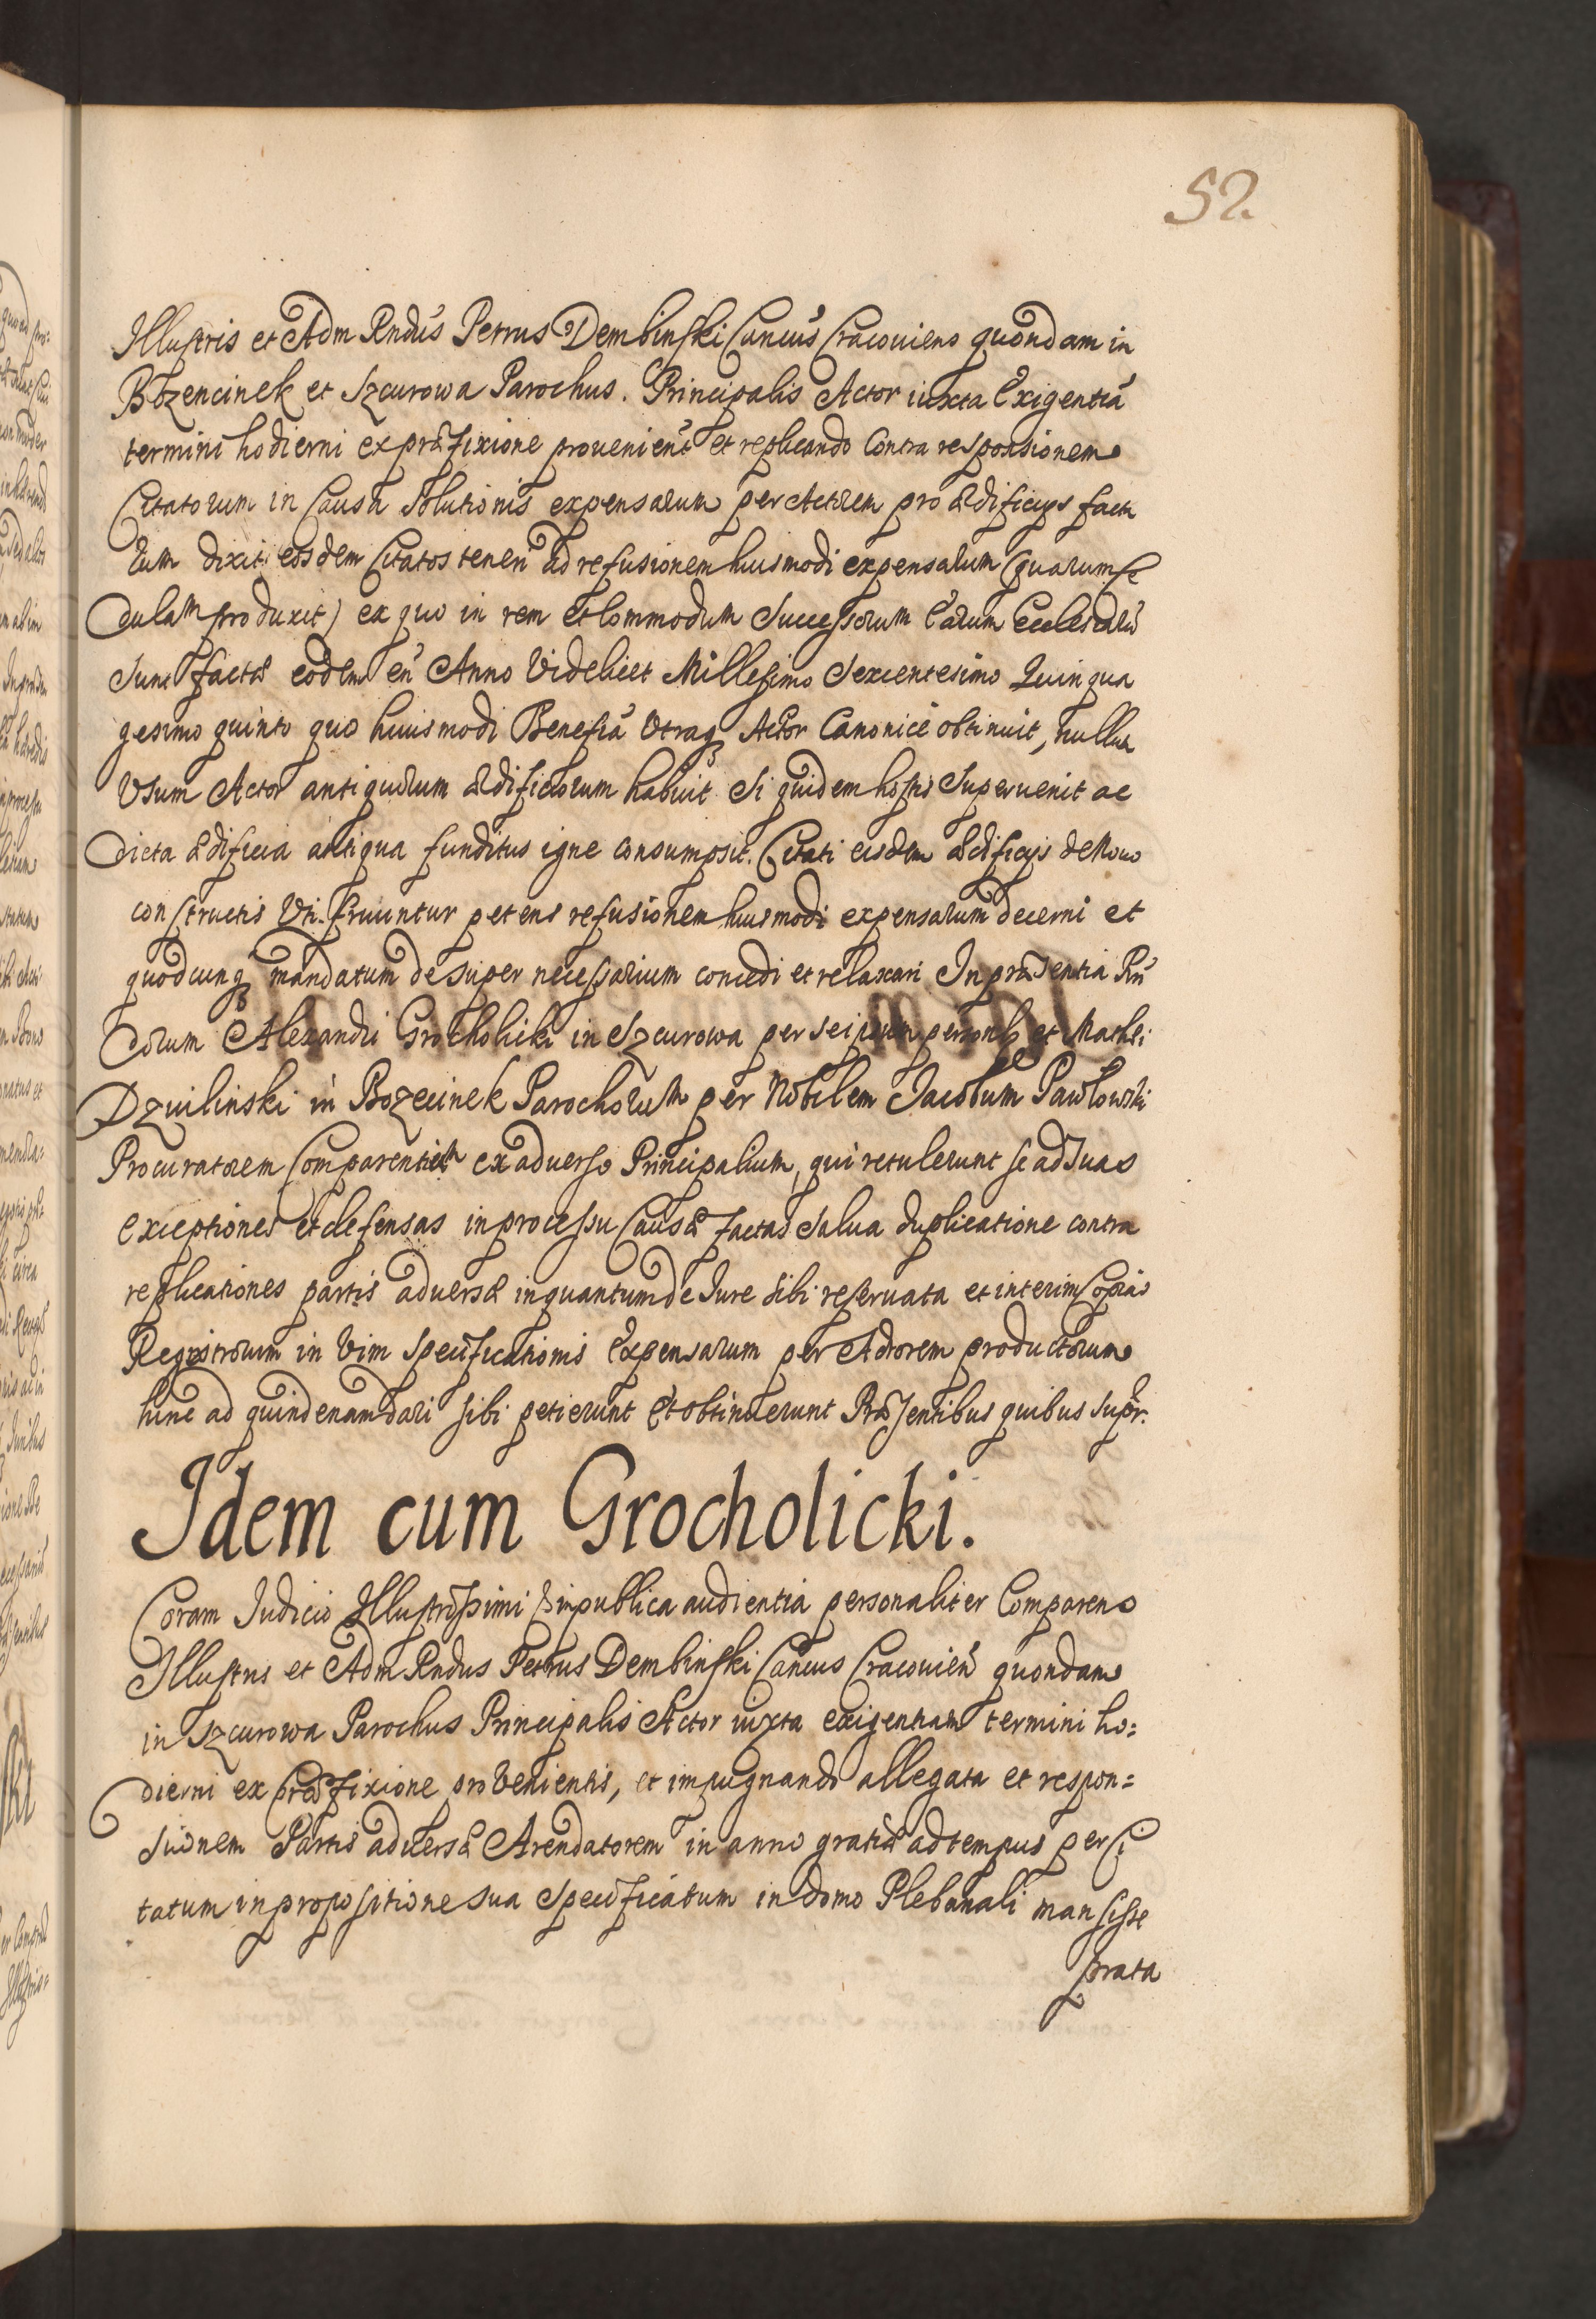 52.
Illustris et Adm Rndus Petrus Dembinski Cancus Cracouiens quondam in
Bozencinek et Szcurowa Parochus. Principalis Actor iuxta Exigentiã
termini hodierni ex præfixione prouenient et replicando Contra responsionem
Citatorum in Causa Solutionis expensarum per Actorem pro ædificijs facta
rum dixit eosdem Citatos teneri ad refusionem huiusmodi expensarum (quarum sce
dulam produxit) ex quo in rem et Commodum Successorum Earum Ecclesiarũ
Sunt factæ eodem eñ Anno Videlicet Millesimo Sexcentesimo Quinqua
gesimo quinto quo huiusmodi Beneficia Vtraq Actor Canonicè obtinuit, nullum
Vsum Actor antiquorum ædificiorum habuit Si quidem hostis Superuenit ac
dicta ædificia antiqua funditus igne consumpsit. Citati eisdem ædificijs de Nouo
constructis Vti. fruuntur petens refusionem huiusmodi expensarum decerni et
quodcunq mandatum desuper necessarium concedi et relaxari In præsentia Rñ
dorum Alexandri Grocholicki in Szcurowa per seipsum personlr et Mathei
Dzwilinski in Bozecinek Parochorum per Nobilem Jacobum Pawlowski
Procuratorem Comparentium ex aduerso Principalium, qui retulerunt se ad Suas
exceptiones et defensas in processu Causæ factas Salua duplicatione contra
replicationes partis aduersæ inquantum de Iure sibi reseruata et interim Copias
Regestrorum in Vim Specificationis Expensarum per Actorem productorum
hinc ad quindenam dari sibi petierunt et obtinuerunt Præsentibus quibus supr.
Idem cum Grocholicki.
Coram Iudicio Illustrissimi in publica audientia personaliter Comparens
Illustris et Adm Rndus Petrus Dembinski Cancus Cracouieñ quondam
in Szcurowa Parochus Principalis Actor iuxta exigentiam termini ho:
dierni ex Præfixione proVenientis, et impugnando allegata et respon=
sionem Partis aduersæ Arendatorem in anno gratiæ ad tempus per Ci
tatum in propositione sua Specificatum in domo Plebanali mansisse
prata